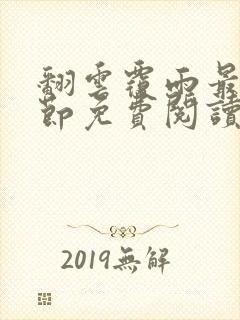 翻雲覆雨最
節免費閱讀
2019無解